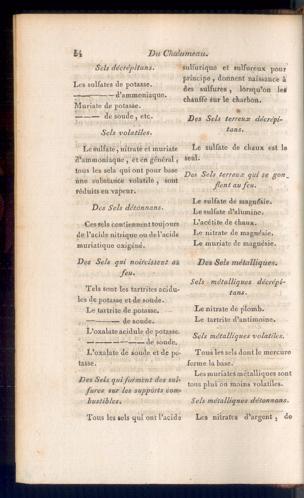 54 Du Chalumeau.
Sels décrépitans.
Les sulfates de potasse.
———— d'ammoniaque.
Muriate de potasse.
———— de soude, etc.
Sels volatiles.
Le sulfate, nitrate et muriate
d'ammoniaque, et en général,
tous les sels qui ont pour base
une substance volatile, sont
réduits en vapeur.
Des Sels détonnans.
Ces sels contiennent toujours
de l'acide nitrique ou de l'acide
muriatique oxigéné.
Des Sels qui noircissent au
feu.
Tels sont les tartrites acidu-
les de potasse et de soude.
Le tartrite de potasse.
———— de soude.
L'oxalate acidule de potasse.
———— de soude.
L'oxalate de soude et de po-
tasse.
Des Sels qui forment des sul-
fures sur les supports com-
bustibles.
Tous les sels qui ont l'acide
sulfurique et sulfureux pour
principe, donnent naissance à
des sulfures, lorsqu'on les
chauffe sur le charbon.
Des Sels terreux décrépi-
tans.
Le sulfate de chaux est le
seul.
Des Sels terreux qui se gon-
flent au feu.
Le sulfate de magnésie.
Le sulfate d'alumine.
L'acétite de chaux.
Le nitrate de magnésie.
Le muriate de magnésie.
Des Sels métalliques.
Sels métalliques décrépi-
tans.
Le nitrate de plomb.
Le tartrite d'antimoine.
Sels métalliques volatiles.
Tous les sels dont le mercure
forme la base.
Les muriates métalliques sont
tous plus ou moins volatiles.
Sels métalliques détonnans.
Les nitrates d'argent, de